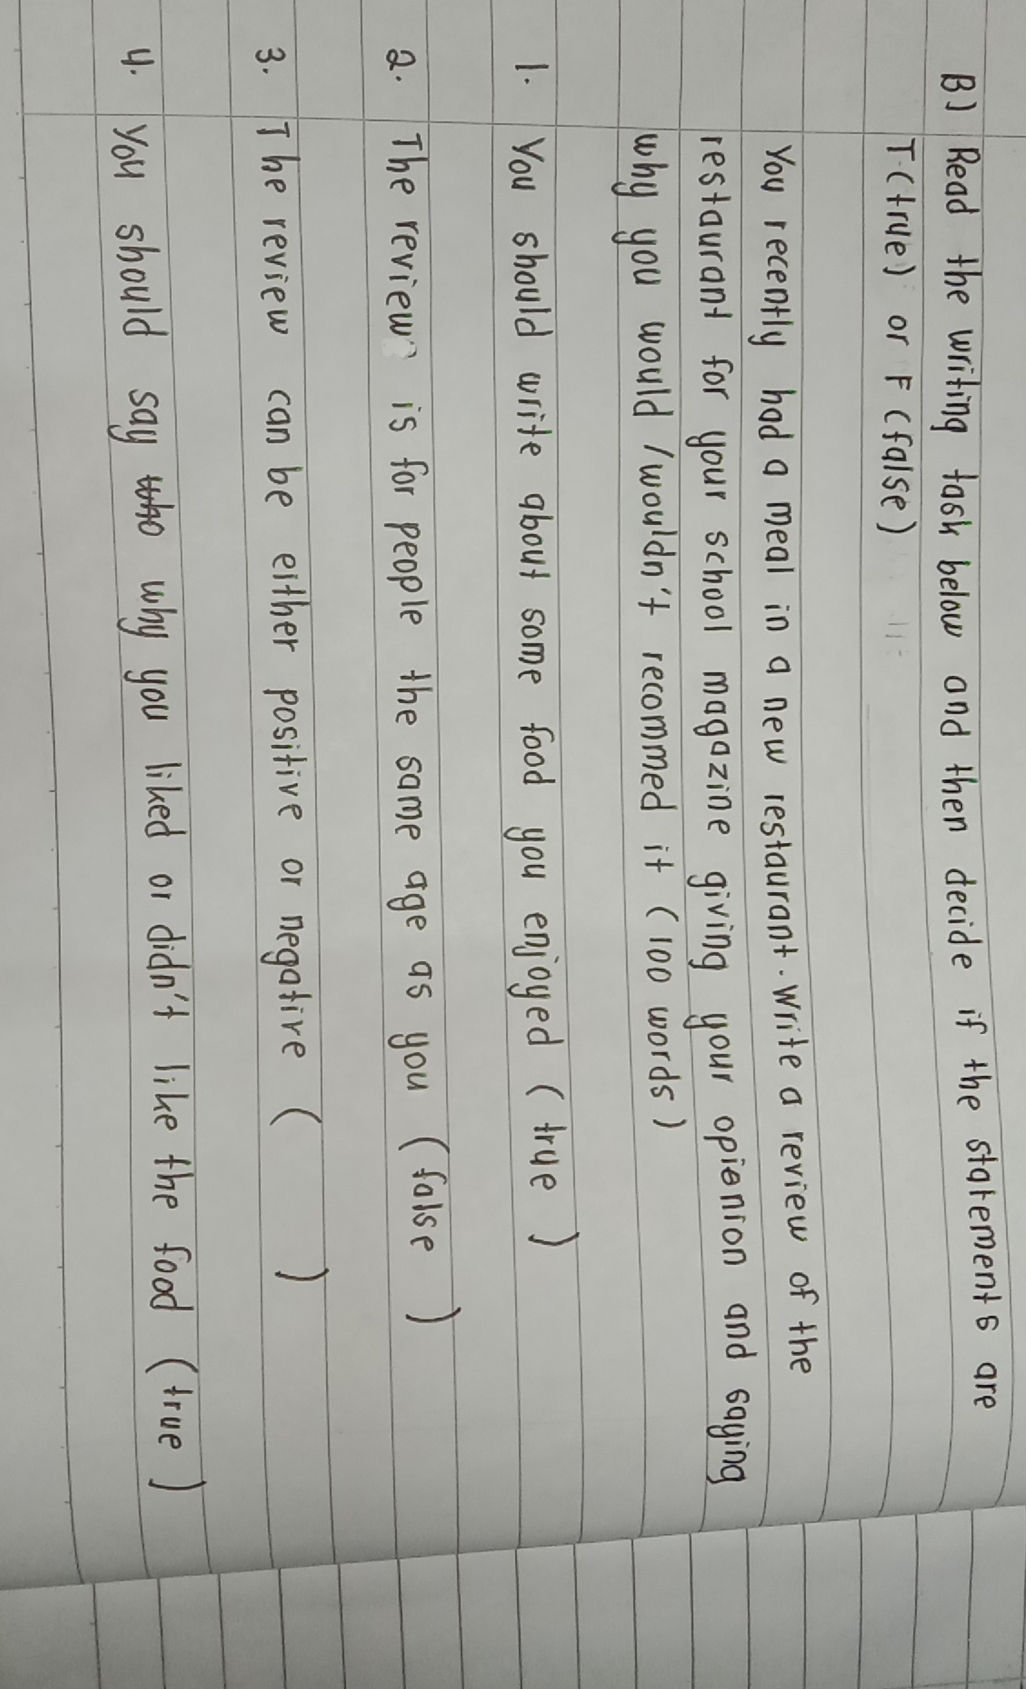 B) Read the writing task below and then decide if the statements are
T(true) or F (false)
You recently had a meal in a new restaurant. Write a review of the
restaurant for your school magazine giving your opienion and saying
why you would / wouldn't recommed it (100 words)
1. You should write about some food you enjoyed (true)
2. The review is for people the same age as you (false)
3. The review can be either positive or negative ( )
4. You should say who why you liked or didn't like the food (true)